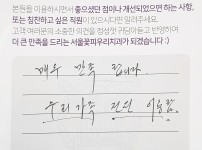 본원을 이용하시면서 좋으셨던 점이나 개선되었으면 하는 사항,
또는 칭찬하고 싶은 직원이 있으시다면 알려주세요.
고객 여러분의 소중한 의견을 정성껏 귀담아듣고 반영하여
더 큰 만족을 드리는 서울꽃피우리치과가 되겠습니다 :)
매우 만족 합니다.
우리가족 전원 이용함